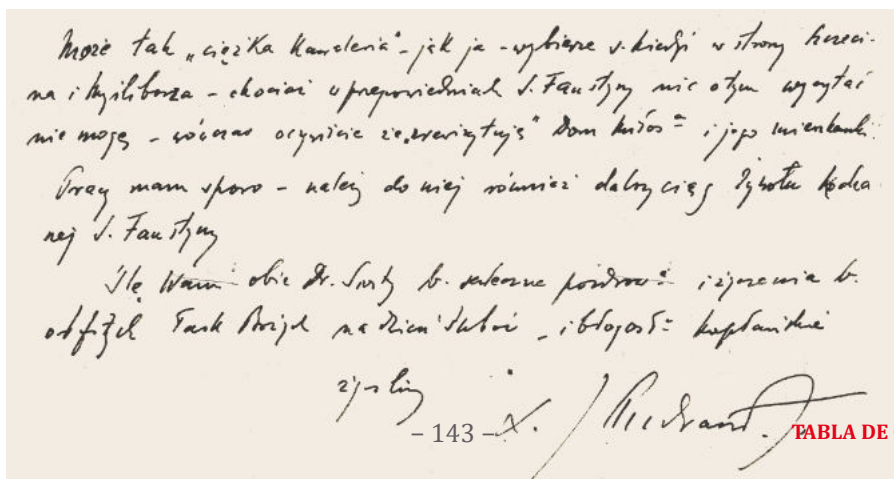 Może tak „ciężka Kawaleria" – jak ja – wybierze s. kiedyś w strony Szczeci-
na i Myśliborza – chociaż w przepowiedniach S. Faustyny nic o tym wyczytać
nie mogę – wówczas oczywiście że „zrewizytuję" Dom Miłos= i jego mieszkanki.
Pracy mam sporo – należy do niej również dalszy ciąg Żywotu Kocha
nej S. Faustyny
Ślę Wam obie Dr. Siostry b. serdeczne pozdrow= i życzenia b.
obfitych Łask Bożych na dzień Ślubów – i błogosł= kapłańskie
życzliwy
X. J
– 143 –
TABLA DE